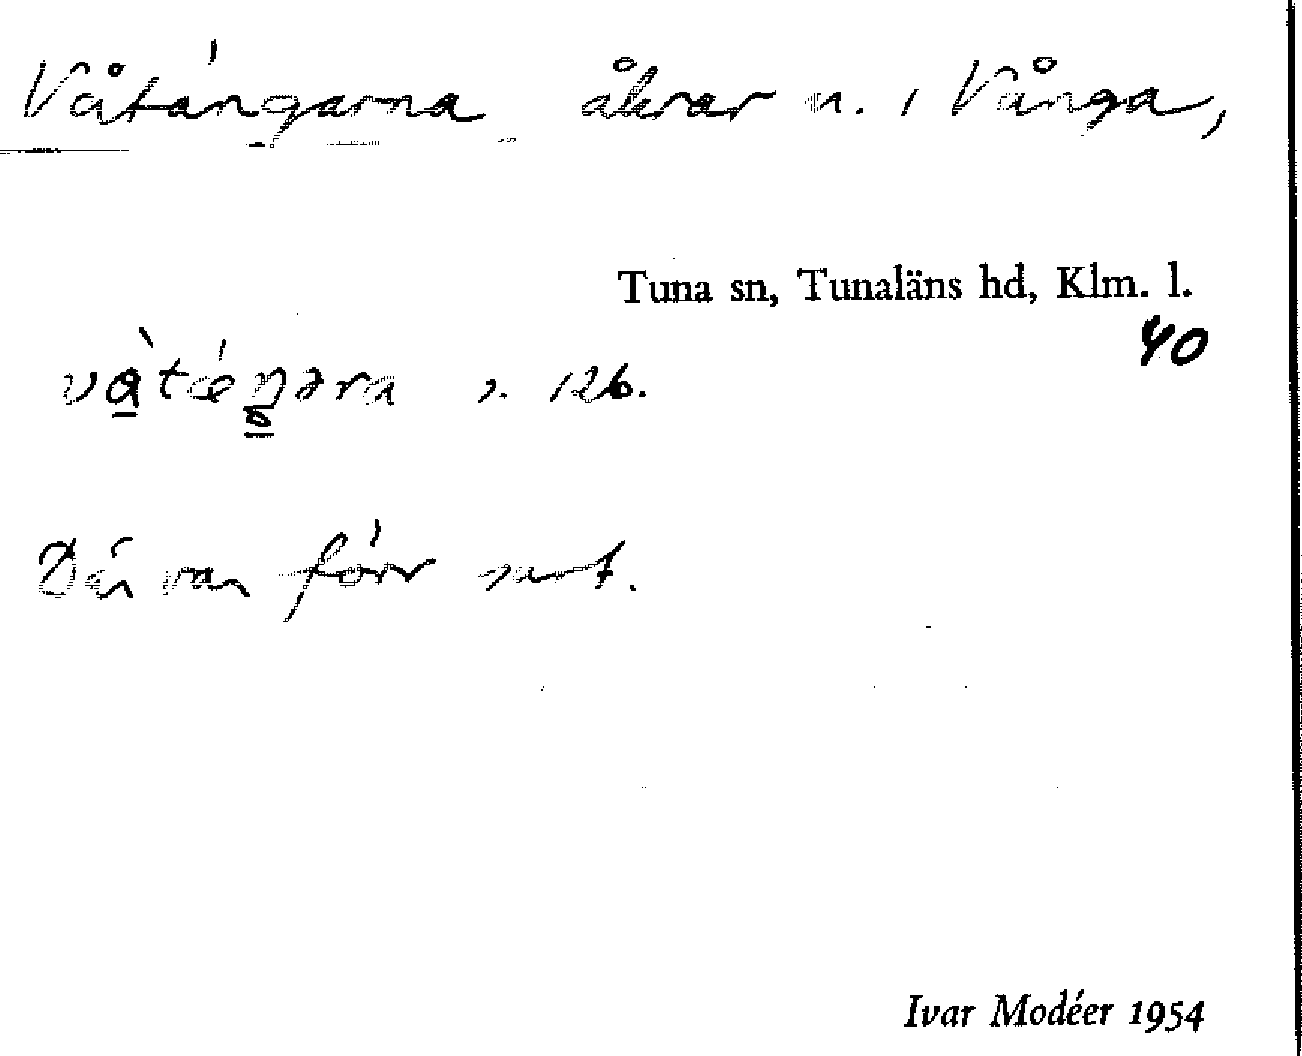 Våtängarna åkrar n. i Vånga,
Tuna sn, Tunaläns hd, Klm. l.
40
s. 126.
Där var förr surt.
Ivar Modéer 1954